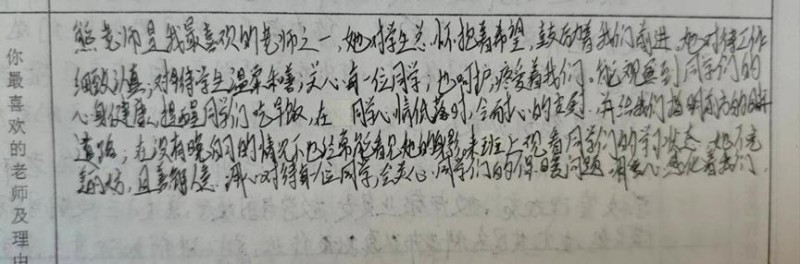 你最喜欢的老师及理由
熊老师是我最喜欢的老师之一,她对学生总怀抱着希望,鼓励着我们前进。她对待工作
细致认真;对待学生温柔和善;关心每一位同学;也呵护,疼爱着我们。能观察到同学们的
心身健康,提醒同学们吃早饭,在同学心情低落时,会耐心的交列,并给我们指明前方的
道路;在没有晚的情况下也经常能看见她的身影,来班上观看同学们的学习状态。她不
,且善解人意。用心对待每一位同学,会关心同学们的问题,用心感化着我们。